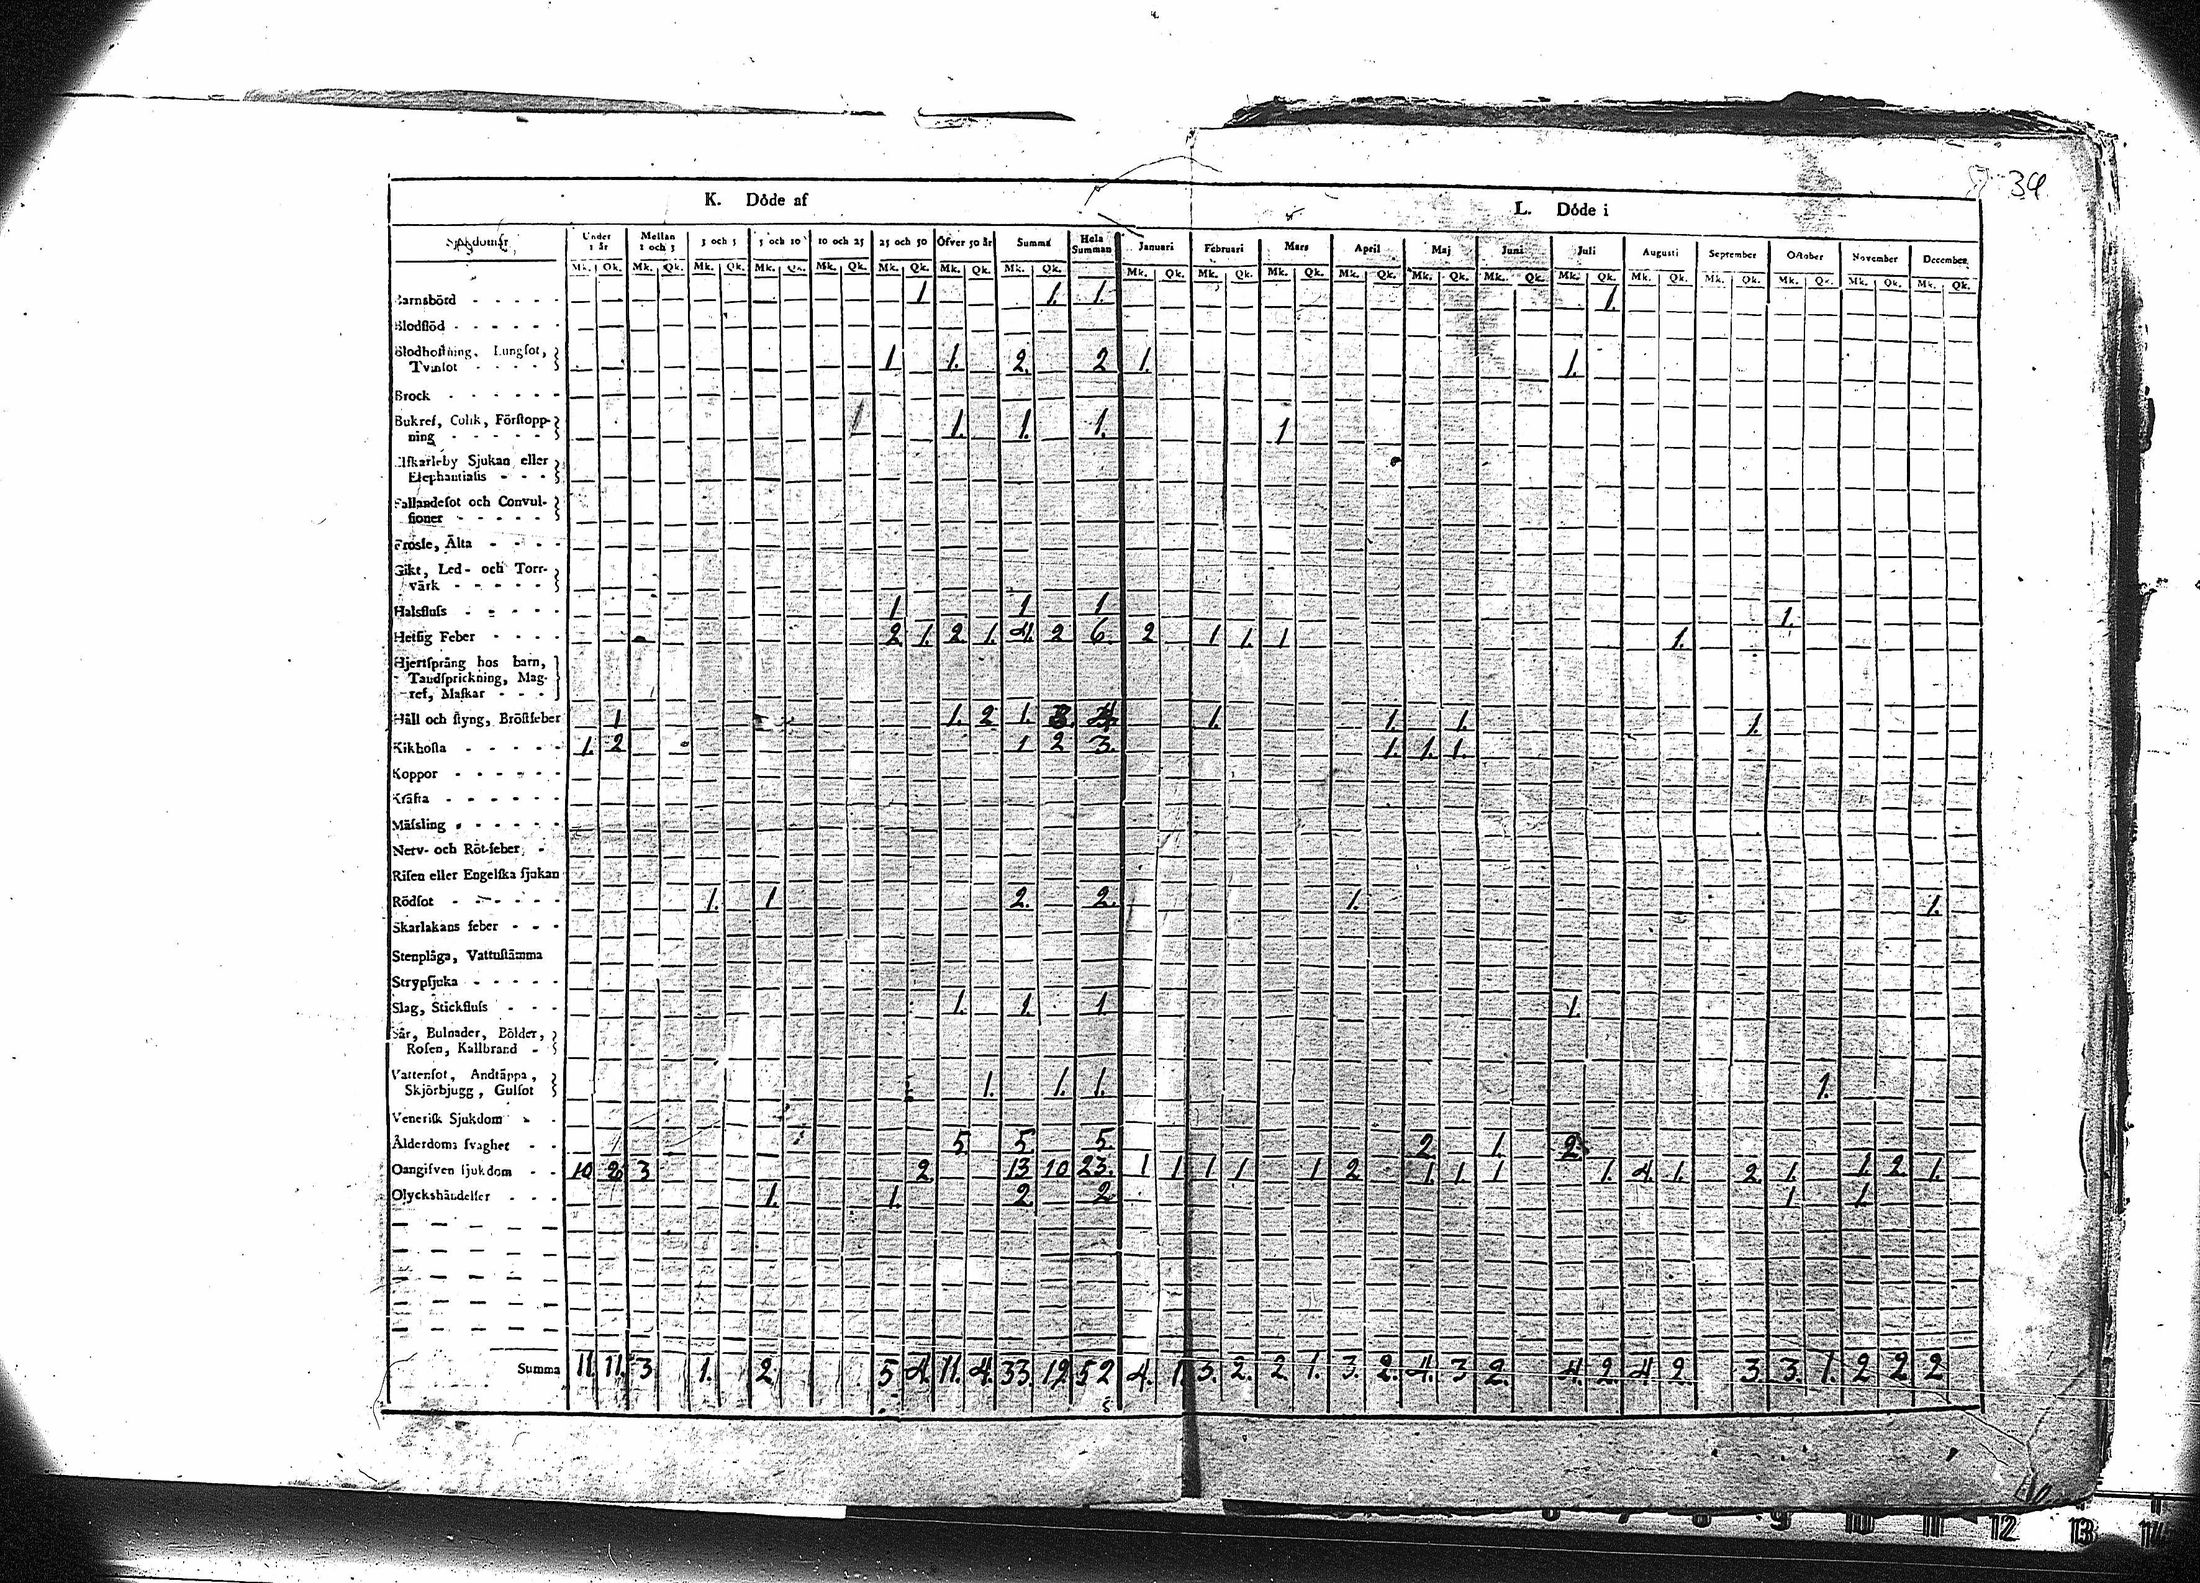 34
K. Döde af
L. Döde i
Sjukdomar Under 1 år Mellan 1 och 3 3 och 5 5 och 10 10 och 25 25 och 50 Öfver 50 år Summa Hela Summan Januari Februari Mars April Maj Juni Juli Augusti September October November December
Mk. Qk. Mk. Qk. Mk. Qk. Mk. Qk. Mk. Qk. Mk. Qk. Mk. Qk. Mk. Qk. Mk. Qk. Mk. Qk. Mk. Qk. Mk. Qk. Mk. Qk. Mk. Qk. Mk. Qk. Mk. Qk. Mk. Qk. Mk. Qk. Mk. Qk. Mk. Qk.
Barnsbörd - - - - - 1 1. 1. 1.
Blodflöd - - - - - -
Blodhostning, Lungsot,
Tvinsot - - - - 1 1. 2. 2 1. 1.
Brock - - - - - -
Bukref, Colik, Förstopp-
ning - - - - - 1. 1. 1. 1
Elfkarleby Sjukan eller
Elephantiasis - - -
Fallandesot och Convul-
sioner - - - - -
Frosse, Älta - - - -
Gikt, Led- och Torr-
värk - - - - -
Halsfluss - - - - - 1 1 1 1.
Hetsig Feber - - - - 2. 1. 2. 1. 4. 2 6. 2 1 1. 1 1.
Hjertsprång hos barn,
Tandsprickning, Mag-
ref, Maskar - - -
Håll och styng, Bröstfeber 1 1. 2 1. 3. 4. 1. 1. 1. 1.
Kikhosta - - - - - 1. 2 1 2 3. 1. 1. 1.
Koppor - - - - - -
Kräfta - - - - - -
Mässling - - - - - -
Nerv- och Röt-feber, -
Risen eller Engelska sjukan
Rödsot - - - - - 1. 1 2. 2. 1. 1.
Skarlakans feber - - -
Stenplåga, Vattustämma
Strypsjuka - - - - -
Slag, Stickfluss - - - 1. 1. 1 1.
Sår, Bulnader, Bölder,
Rosen, Kallbrand -
Vattensot, Andtäppa,
Skjörbjugg, Gulsot 1. 1. 1. 1.
Venerisk Sjukdom - -
Ålderdoms svaghet - - 5 5 5. 2 1. 2
Oangifven sjukdom - - 10 8 3 2. 13 10 23. 1 1 1 1 1 2 1. 1. 1 1. 4. 1. 2. 1. 1. 2. 1.
Olyckshändelser - - - 1. 1. 2 2 1 1
Summa 11. 11. 3 1. 2 5 4. 11. 4. 33. 19 52 4. 1 3. 2. 2 1. 3. 2. 4. 3 2. 4. 2 4. 2. 3. 3. 1. 2 2 2
8 9 10 11 12 13 14